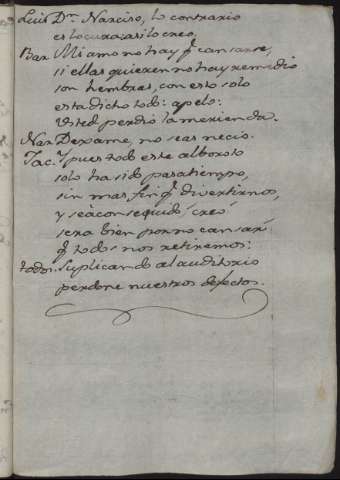 Luis Dn. Narciso, lo contrario
es locura; asi lo creo,
Bar Mi amo no hay q̃ cansarse,
si ellas quieren no hay remedio
son hembras, con esto solo
esta dicho todo: apelo:
Usted perdió la merienda.
Nar Dexame, no seas necio.
Jac. Y pues todo este alboroto
solo ha sido pasatiempo,
sin mas fin q̃ divertirnos,
y se á conseguido, creo
sera bien por no cansar
q̃ todos nos retiremos:
todos. Suplicando al auditorio
perdone nuestros defectos.